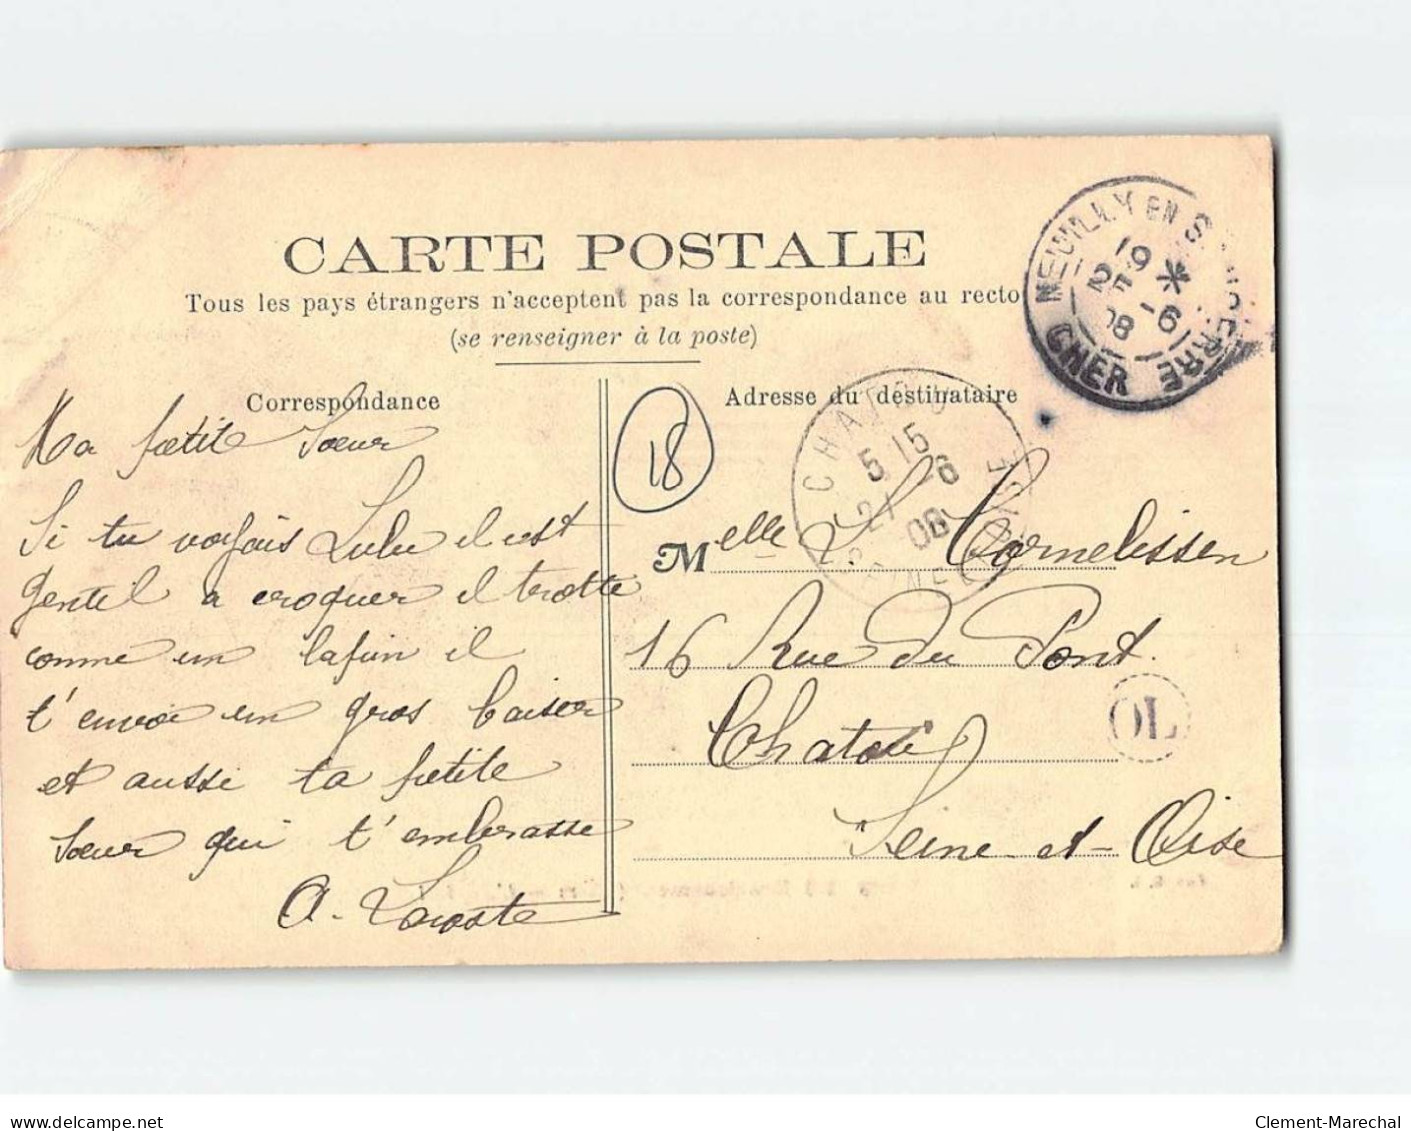 CARTE POSTALE
Tous les pays étrangers n'acceptent pas la correspondance au recto
(se renseigner à la poste)
Correspondance
Ma petite Sœur
Si tu voyais Lulu il est
gentil a croquer il trotte
comme un lapin il
t'envoie un gros baiser
et aussi ta petite
Sœur qui t'embrasse
A. Lacoste
18
Adresse du destinataire
Melle L. Cornelissen
16 Rue du Pont.
Chatou
Seine-et-Oise
NEUILLY EN SANCERRE
19 *
25 -6
08
CHER
CHATOU
5 15
27 -6
08
SEINE ET OISE
OL
delcampe.net
Clement-Marechal